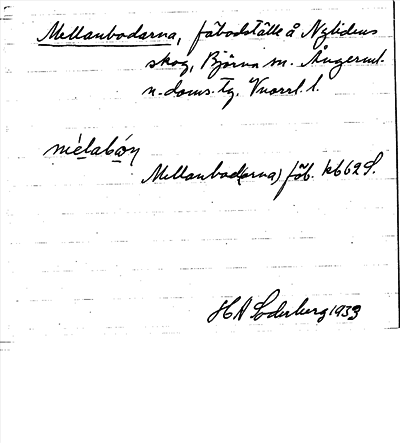 Mellanbodarna, fäbodställe å Nylidens
skog, Björna sn. Ångerml.
n. doms. Tg. Vnorrl. l.
mèlabón
Mellanbod(arna) fäb. kb 62 S.
H A Söderberg 1933